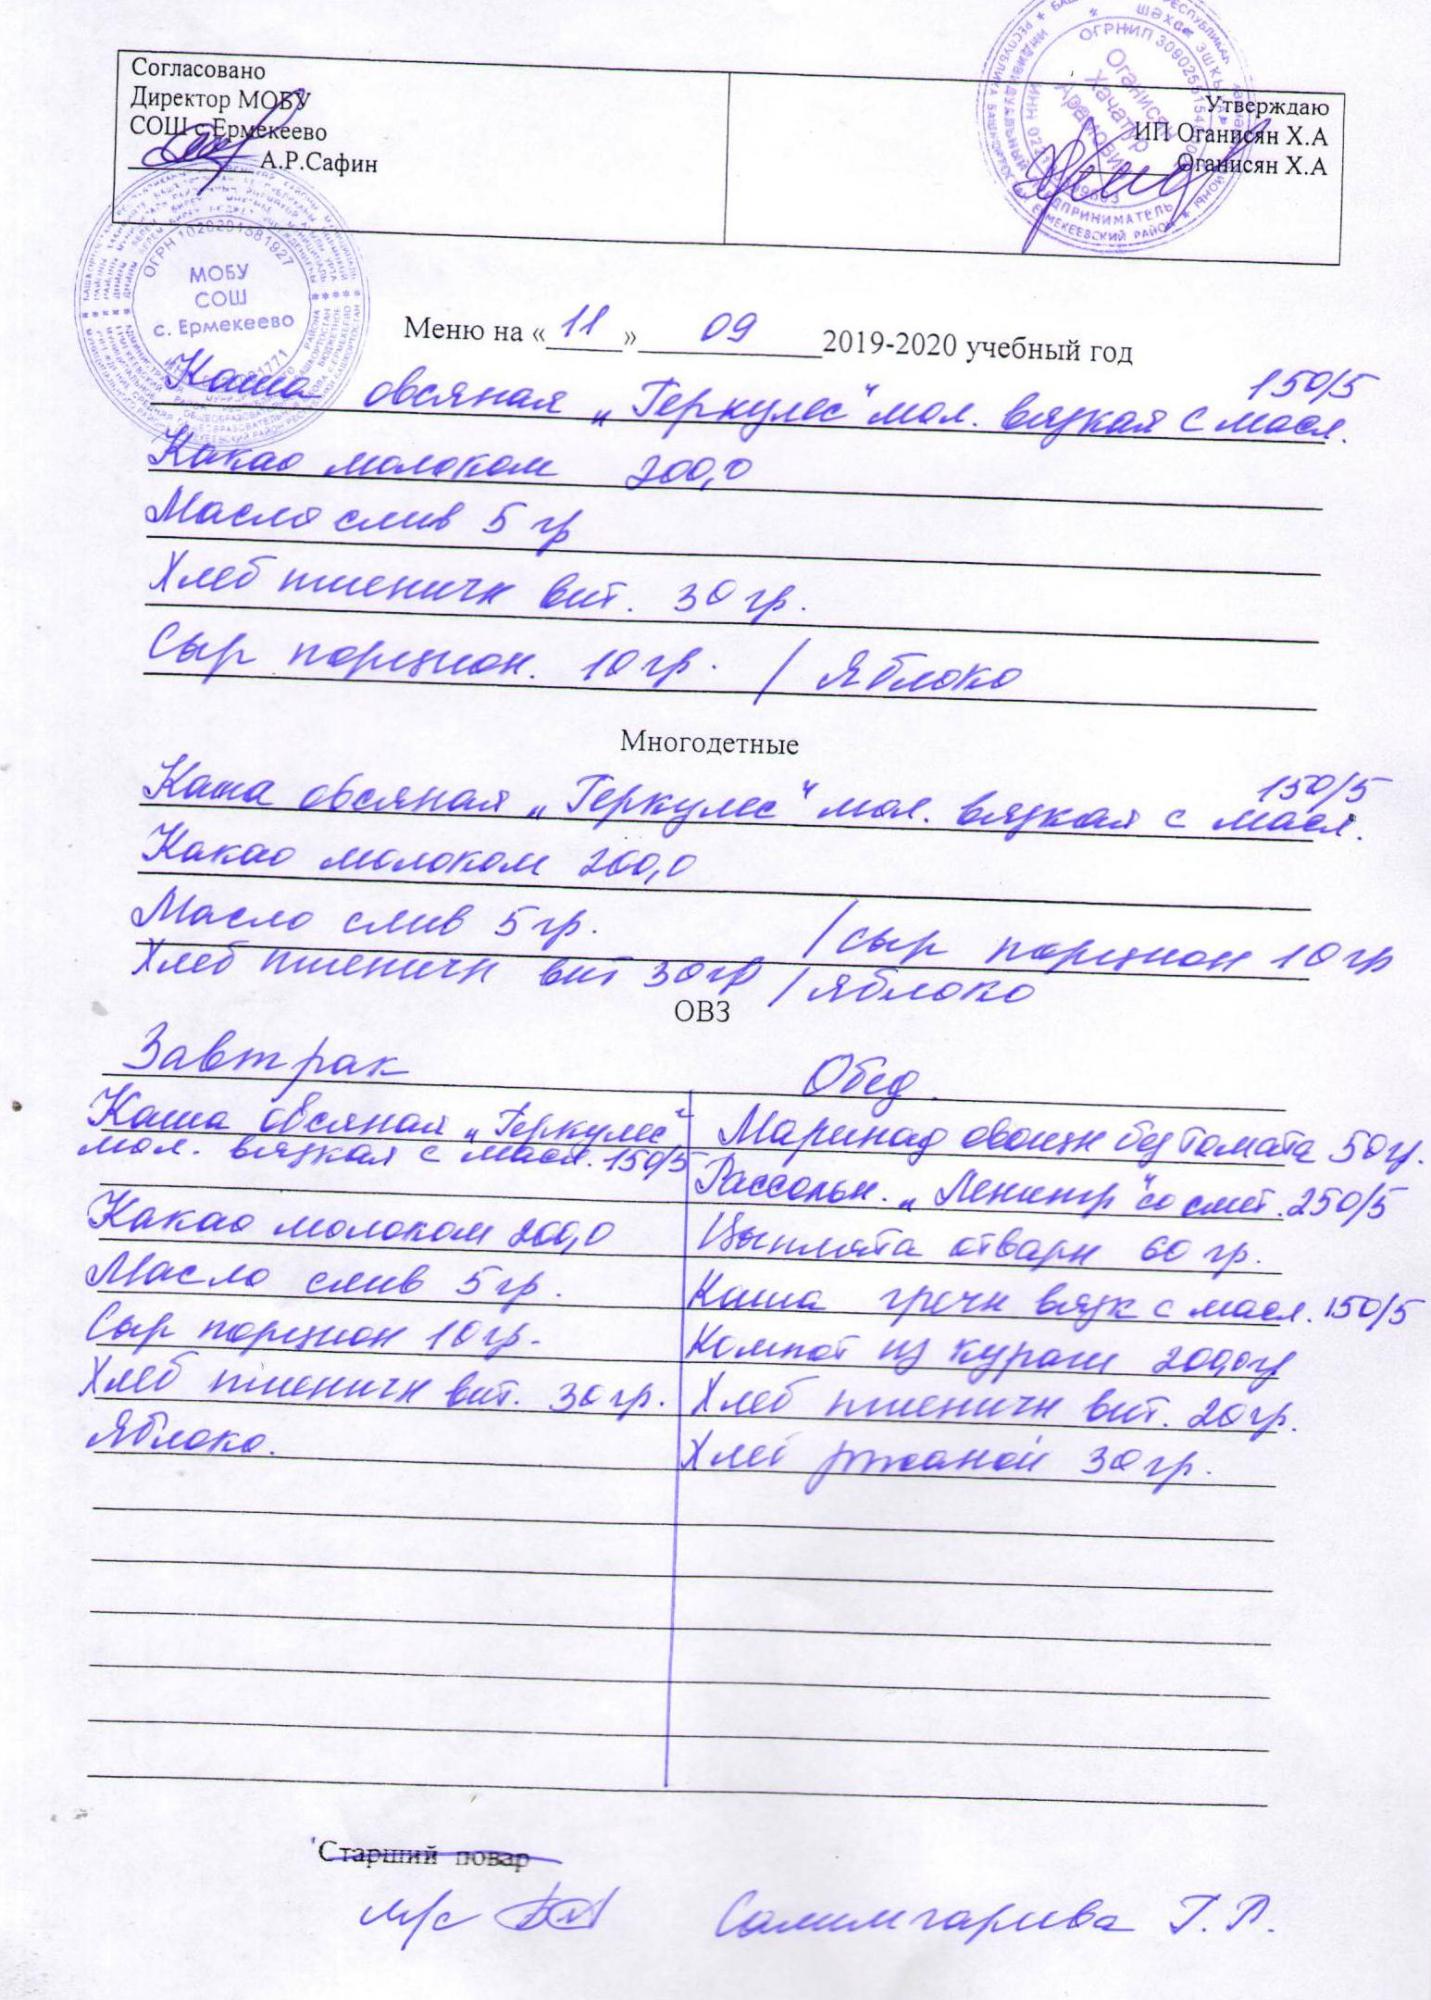 Согласовано
Директор МОБУ
СОШ с Ермекеево
А.Р.Сафин
Утверждаю
ИП Оганисян Х.А
Оганисян Х.А
ОГРНИП
Оганисян
Хачатур
ЕРМЕКЕЕВСКИЙ РАЙОН
ОГРН 1020201581927
МОБУ
СОШ
с. Ермекеево
Меню на «11» 09 2019-2020 учебный год
150/5
Каша овсяная „Геркулес" мол. вязкая с масл.
Какао молоком 200,0
Масло слив 5 гр
Хлеб пшеничн вит. 30 гр.
Сыр порцион. 10 гр. / Яблоко
Многодетные
150/5
Каша овсяная „Геркулес" мол. вязкая с масл.
Какао молоком 200,0
Масло слив 5 гр. / сыр порцион 10 гр
Хлеб пшеничн вит 30 гр / яблоко
ОВЗ
Завтрак
Каша овсяная „Геркулес"
мол. вязкая с масл. 150/5
Какао молоком 200,0
Масло слив 5 гр.
Сыр порцион 10 гр.
Хлеб пшеничн вит. 30 гр.
Яблоко.
Обед.
Маринад овощн без томата 50 гр.
Рассольн. „Ленингр" со смет. 250/5
Цыплята отварн 60 гр.
Каша гречн вязк с масл. 150/5
Компот из кураги 200,0 гр
Хлеб пшеничн вит. 20 гр.
Хлеб ржаной 30 гр.
Старший повар
м/с Салимгареева Г.Р.